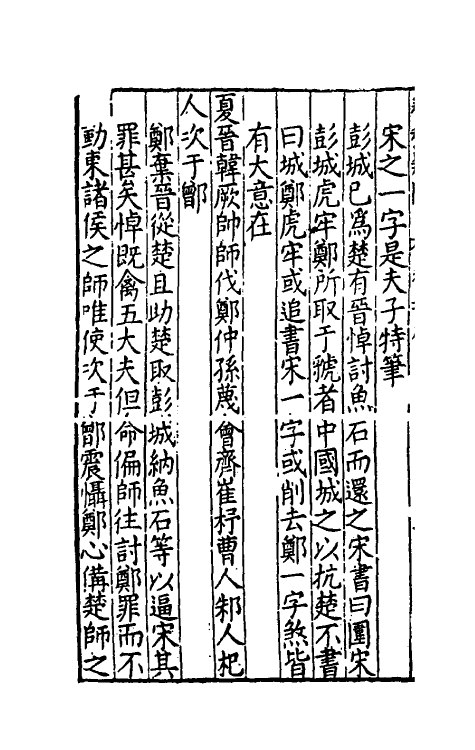 宋之一字是夫子特筆
彭城已爲楚有晉悼討魚石而還之宋書曰圍宋
彭城虎牢鄭所取于虢者中國城之以抗楚不書
曰城鄭虎牢或追書宋一字或削去鄭一字煞皆
有大意在
夏晉韓厥帥師伐鄭仲孫蔑會齊崔杼曹人邾人杞
人次于鄫
鄭棄晉從楚且助楚取彭城納魚石等以逼宋其
罪甚矣悼既禽五大夫但命偏師往討鄭罪而不
動東諸侯之師唯使次于鄫震懾鄭心備楚師之